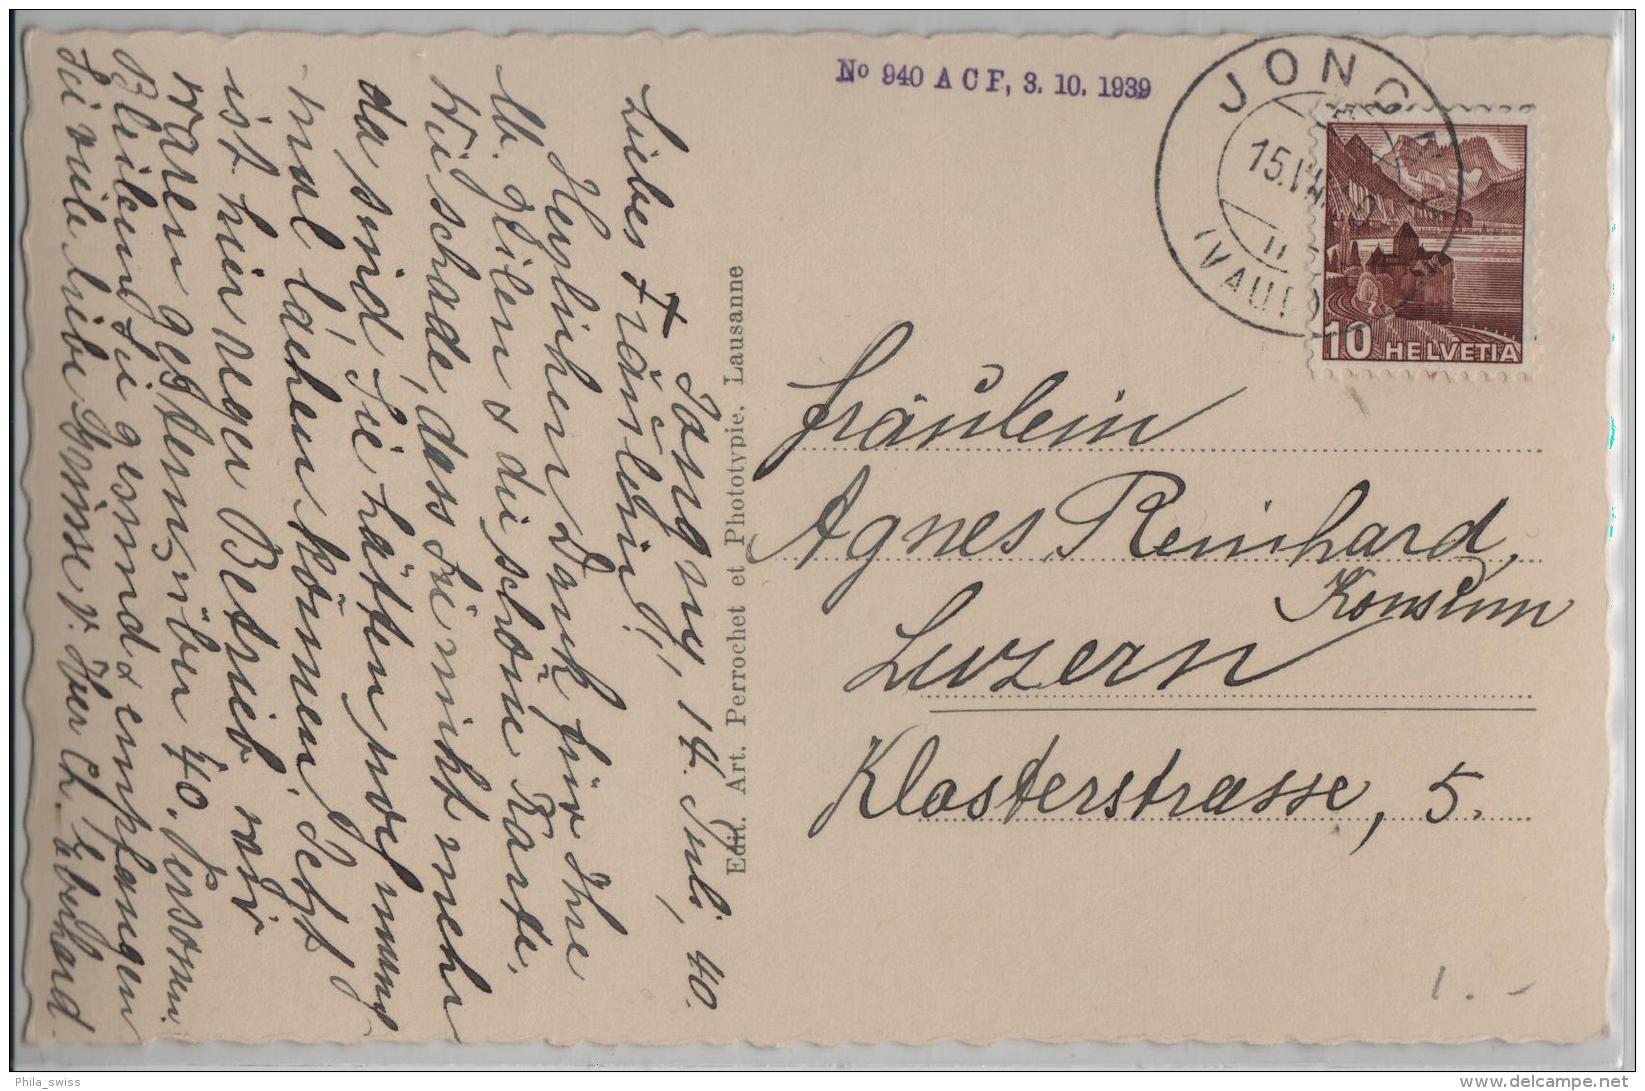 No 940 A C F, 3. 10. 1939
JONGNY
15.VII.
(VAUD)
10 HELVETIA
Jongny, 14. Juli, 40.
Liebes Fräulein!
Herzlichen Dank für Ihne
lb. Zeilen & die schöne Karte.
Wie schade, dass Sie nicht mehr
da sind, Sie hätten noch mand
mal lachen können. Jetzt
ist hier reger Betrieb, wir
waren gestern über 40. Person.
Bleiben Sie gesund & empfangen
Sie viele liebe Grüsse v. Ihrer Ch. Eberhard.
Edit. Art. Perrochet et Phototypie, Lausanne
Fräulein
Agnes Reinhard,
Konsum
Luzern
Klosterstrasse, 5.
1.-
Phila_swiss
www.delcampe.net